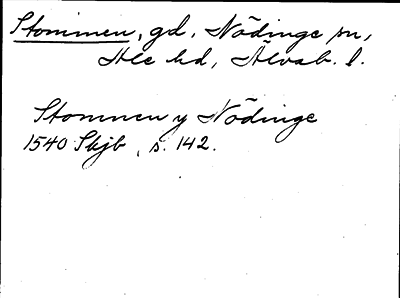 Stommen, gd, Nödinge sn,
Ale hd, Älvsb. l.
Stommen y Nödinge
1540 Skjb, s. 142.